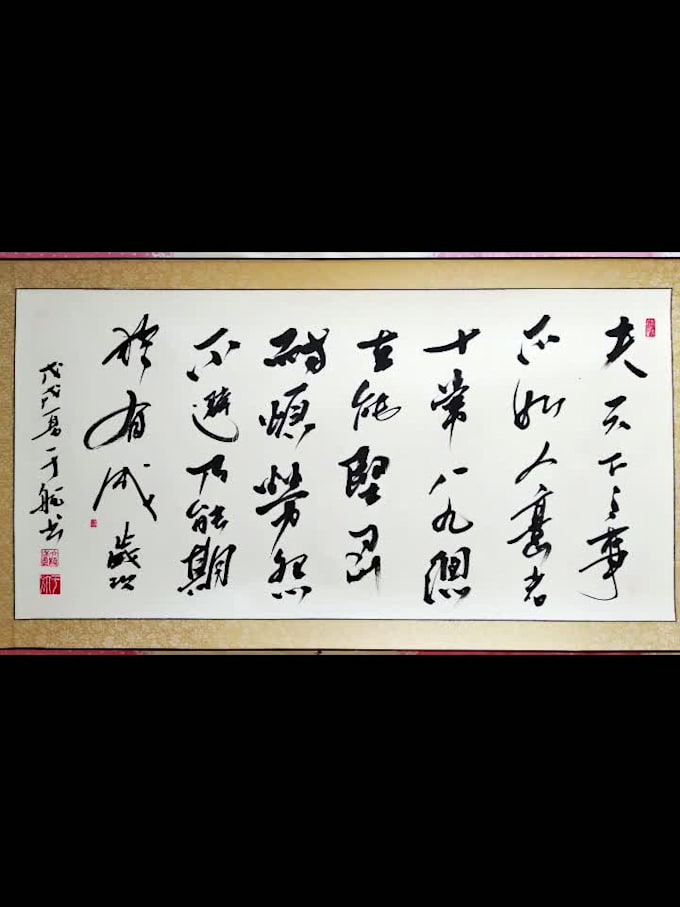 夫天下之事
不如人意者
十常八九總
在能堅忍
耐煩勞怨
不避乃能期
於有成歲次
戊戌夏于航书